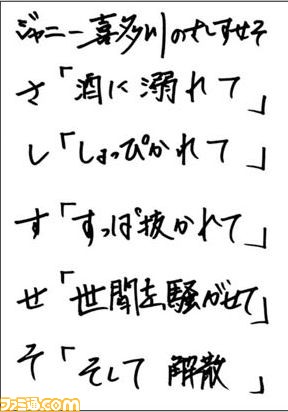 ジャニー喜多川のさしすせそ
さ「酒に溺れて」
し「しょっぴかれて」
す「すっぱ抜かれて」
せ「世間を騒がせて」
そ「そして 解散」
ファミ通.com